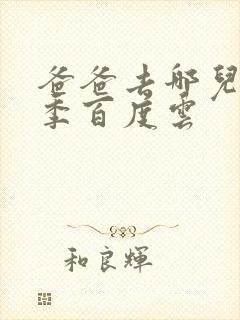 爸爸去哪兒
季百度雲
和良輝